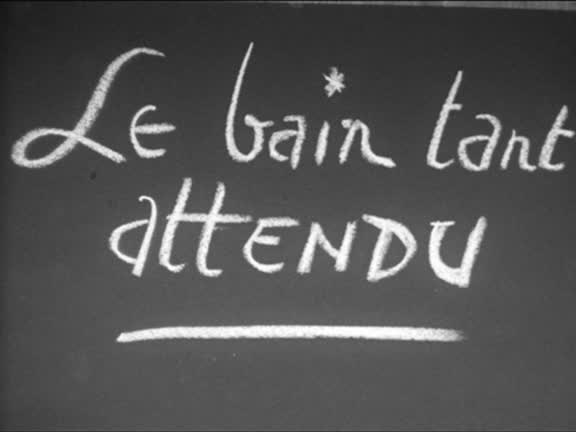 Le bain tant
attENDU